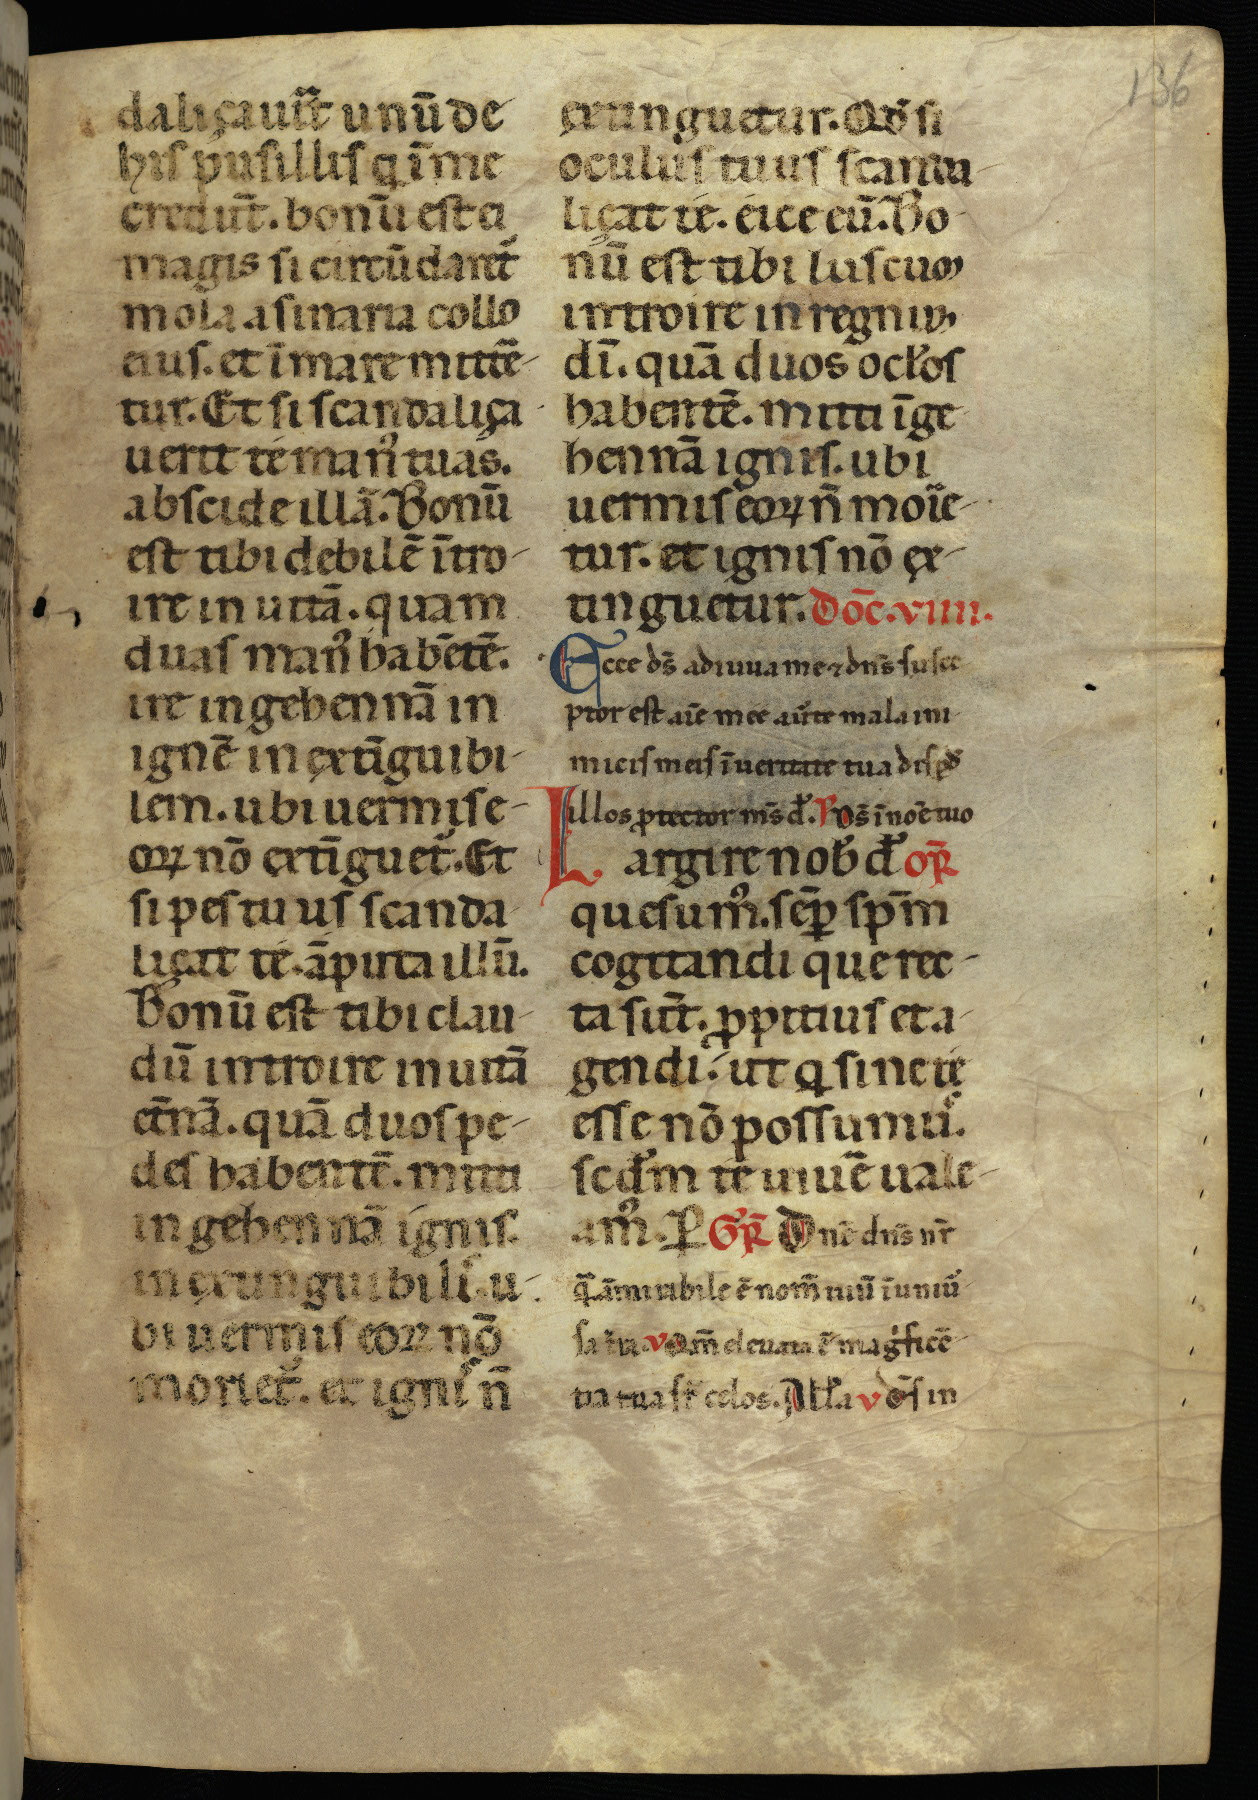 136
daliçauit unū de
his pusillis q̄ ī me
credūt. bonū est ei
magis si circūdaret᷑
mola asinaria collo
eius. et ī mare mittē-
tur. Et si scandaliça
uerit te man᷒ tua.
abscide illā. Bonū
est tibi debilē ītro-
ire in uitā. quam
duas man᷒ habētē.
ire in gehennā in
ignē inextīguibi-
lem. ubi uermis e-
oꝝ nō extīguet᷑. Et
si pes tuus scanda
liçat te. āputa illū.
Bonū est tibi clau-
dū introire in uitā
et̄nā. quā duos pe-
des habentē. mitti
in gehennā ignis.
inextinguibilis. u-
bi uermis eoꝝ nō
moriet᷑. et ignis n̄
extinguetur. Qd̄ si
oculus tuus scanda-
liçat te. eice eū. Bo-
nū est tibi luscum
introire in regnum
dī. quā duos oclos
habentē. mitti ī ge-
hennā ignis. ubi
uermis eoꝝ n̄ moīe-
tur. et ignis nō ex-
tinguetur. Dōc. viiii.
Ecce dš adiuua me ⁊ dn̄s susce
ptor est aīe mee au̅te mala ini
micis meis ī ueritate tua disꝑd̄
illos ꝓtector mš d̄. ℣ Dš ī noīe tuo
Largire nob̄ d̄ Or̄
quesum᷒. sēꝑ spm̄
cogitandi que rec-
ta sūt. ꝓpitius et a-
gendi. ut q̄ sine te
esse nō possumus.
scdm̄ te uiuē uale-
am᷒. ꝑ Gr̄ Dnē dn̄s nr̄
q̄ āmirabile ē nom̄ tuū ī uniu᷒
sa tr̄a. v Qm̄ eleuata ē magͥficē-
tia tua sr̄ celos. Allā v Dš in